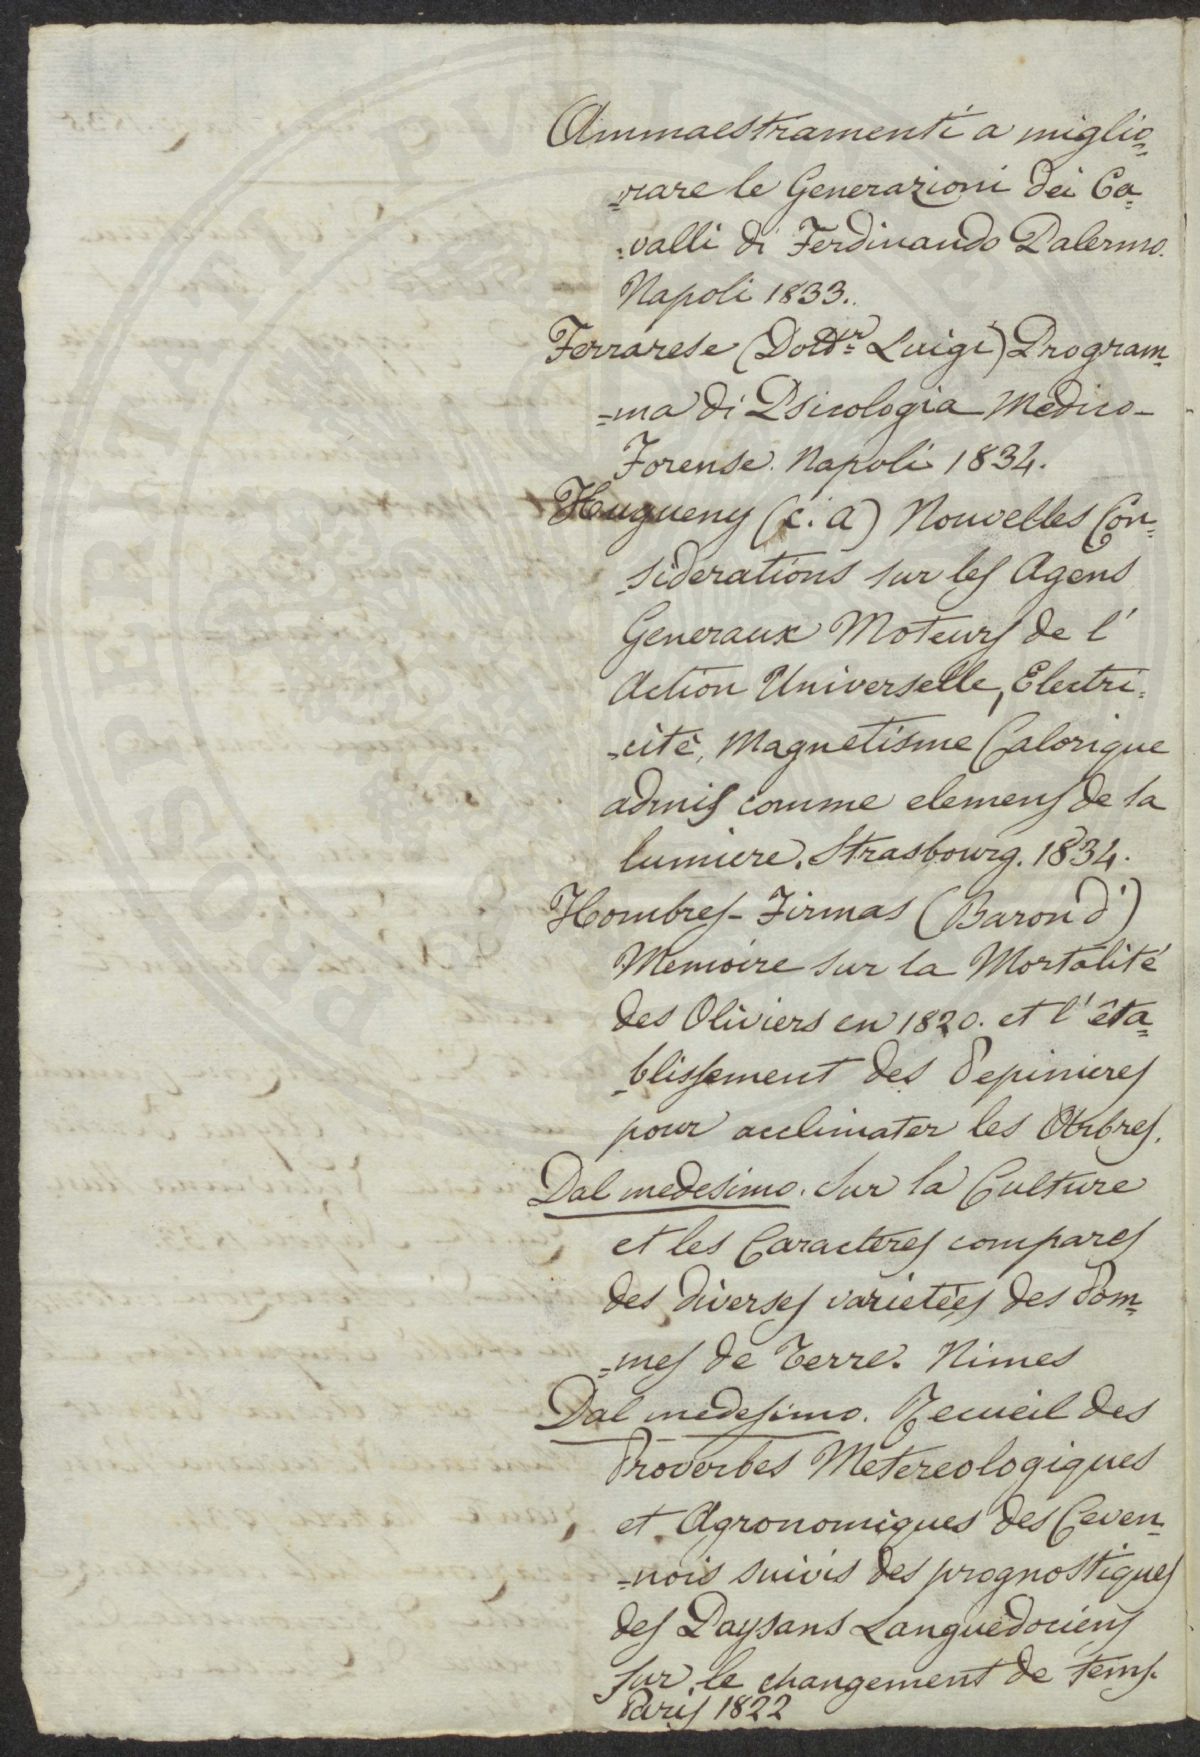 Ammaestramenti a miglio=
=rare le Generazioni dei Ca=
=valli di Ferdinando Palermo.
Napoli 1833.
Ferrarese (Dottr. Luigi) Program=
=ma di Psicologia Medico-
Forense. Napoli 1834.
Hugueny (C. A) Nouvelles Con=
=siderations sur les Agens
Generaux Moteurs de l'
Action Universelle, Electri=
=cité, Magnetisme Calorique
admis comme elemens de la
lumiere. Strasbourg. 1834.
Hombres-Firmas (Baron d')
Memoire sur la Mortalité
des Oliviers en 1820. et l'êta=
=blissement des Pepinieres
pour acclimater les Arbres.
Dal medesimo. Sur la Culture
et les Caracteres compares
des diverses varietées des Pom=
=mes de Terre. Nimes
Dal medesimo. Recueil des
Proverbes Metereologiques
et Agronomiques des Ceven=
=nois suivis des prognostiques
des Paysans Languedociens
sur le changement de tems.
Paris 1822